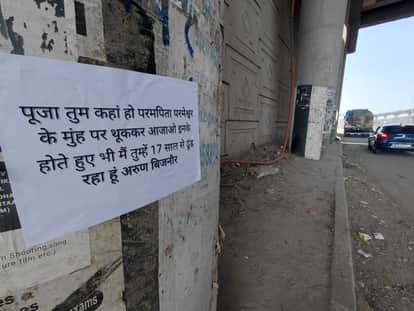 पूजा तुम कहां हो परमपिता परमेश्वर
के मुंह पर थूककर आजाओ इनके
होते हुए भी मैं तुम्हें 17 साल से ढूंढ
रहा हूं अरुण बिजनौर
Shooting,song
ure film etc.)